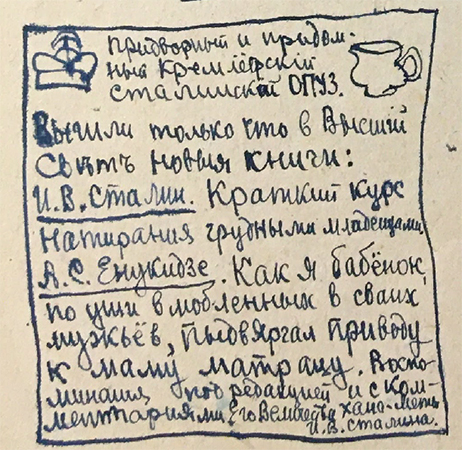 Придворный и придом-
ный Кремлёвскій
сталинской ОПУЗ.
Вышли только что в Высшій
Свѣтъ новыя книги:
И.В.Сталин. Краткий курс
натирания грудными младенцами.
А.С. Енукидзе. Как я бабёнок,
по уши влюбленных в сваих
мужьёв, пыдвяргал приводу
к маму матрацу. Воспо-
минания под редакцией и с ком-
ментариями Его Велічества
И.В. Сталина.